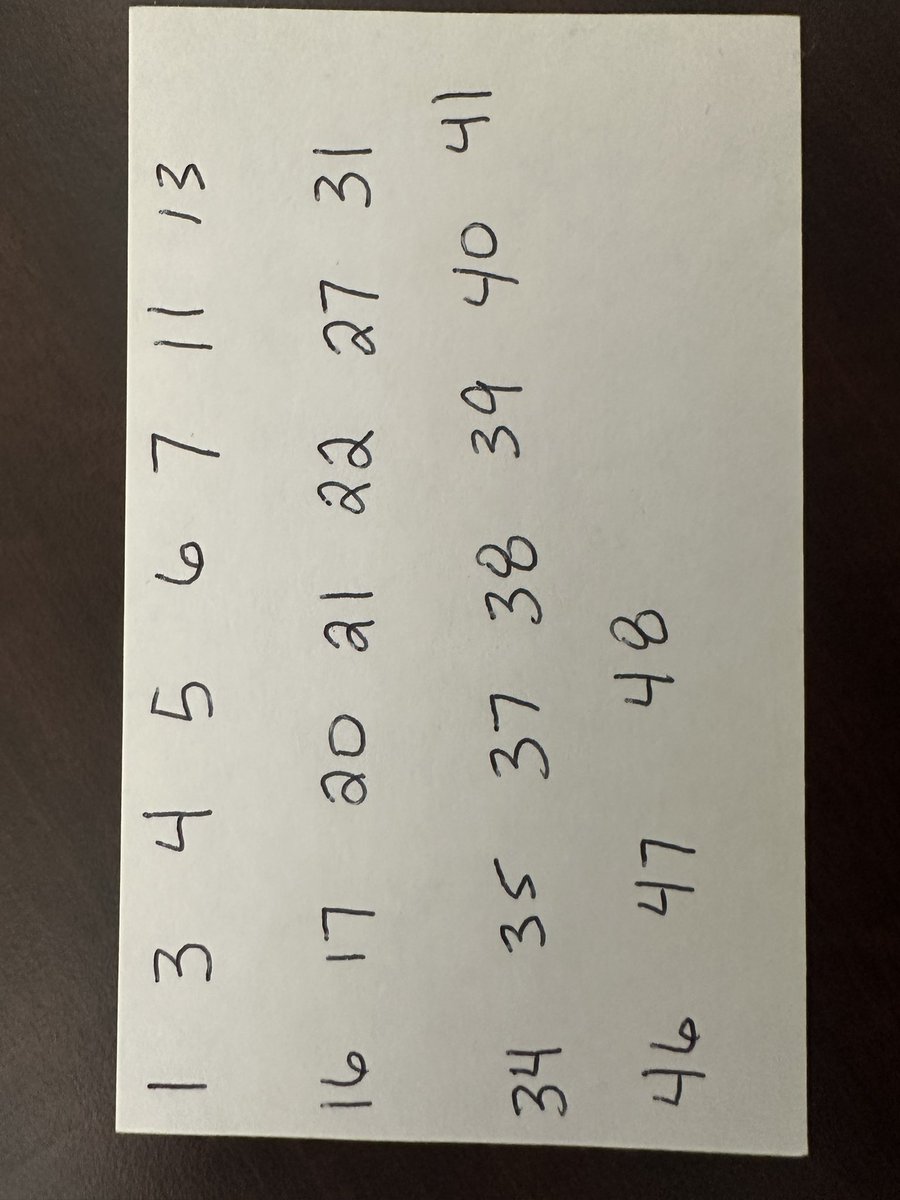 1 3 4 5 6 7 11 13
16 17 20 21 22 27 31
34 35 37 38 39 40 41
46 47 48